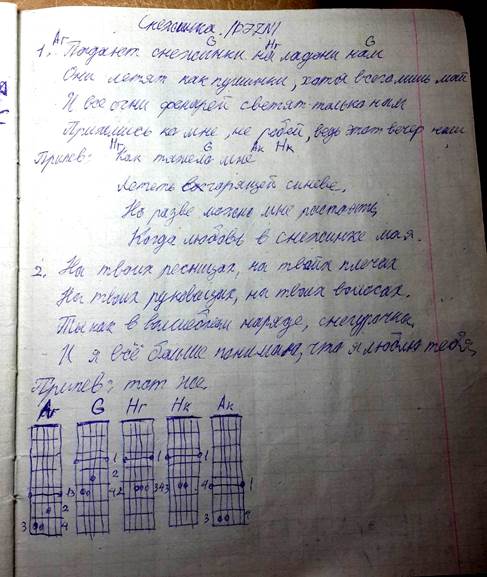 Снежинка
Аг G Нг G
1. Падают снежинки на ладони нам
Они летят как пушинки, хоть всего лишь май
И все огни фонарей светят только нам
Прижмись ко мне, не робей, ведь этот вечер наш
Нг G Ак Нк
Припев: Как тяжело мне
Лететь в сгорящей синеве,
Но разве можно мне растаять,
Когда любовь в снежинке мая.
2. На твоих ресницах, на твоих плечах
На твоих рукавицах, на твоих волосах.
Ты как в волшебном наряде, снегурочка,
И я всё больше понимаю, что я люблю тебя,
Припев: тот же
Аг G Нг Нк Ак